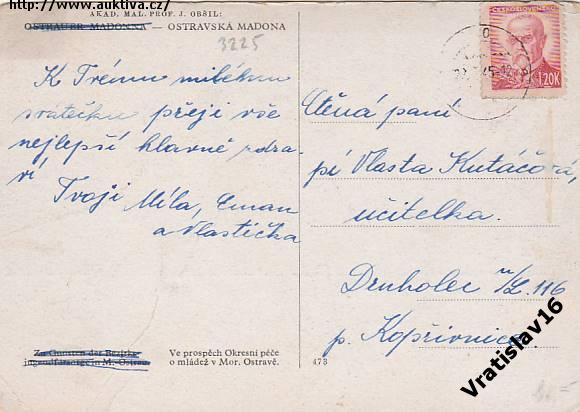 http://www.auktiva.cz/
AKAD. MAL. PROF. J. OBŠIL:
OSTRAUER MADONNA — OSTRAVSKÁ MADONA
3225
K Tvému milému
svátečku přeji vše
nejlepší hlavně zdra-
ví
Tvoji Míla, Eman
a Vlastička
ČESKOSLOVENSKO
1.20K
Ctěná paní
pí Vlasta Kutáčová,
učitelka.
Drnholec n/L. 116
p. Kopřivnice
Zu Gunsten der Bezirks-
jugendfürsorge in M.-Ostrau
Ve prospěch Okresní péče
o mládež v Mor. Ostravě.
473
Vratislav16